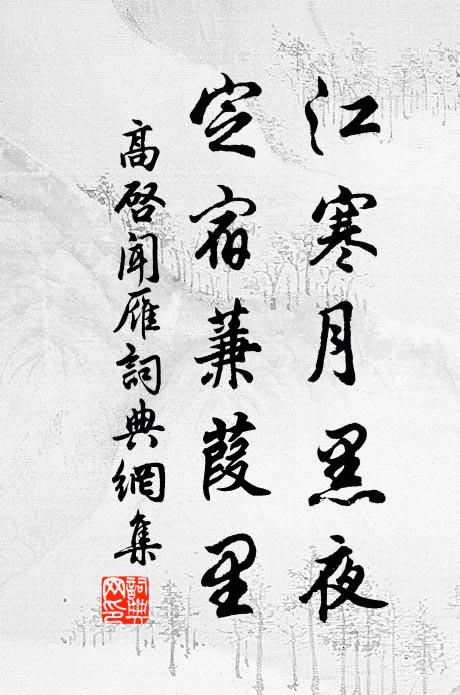 江寒月黑夜
定宿蒹葭里
高啓聞雁詞典網集
詞典